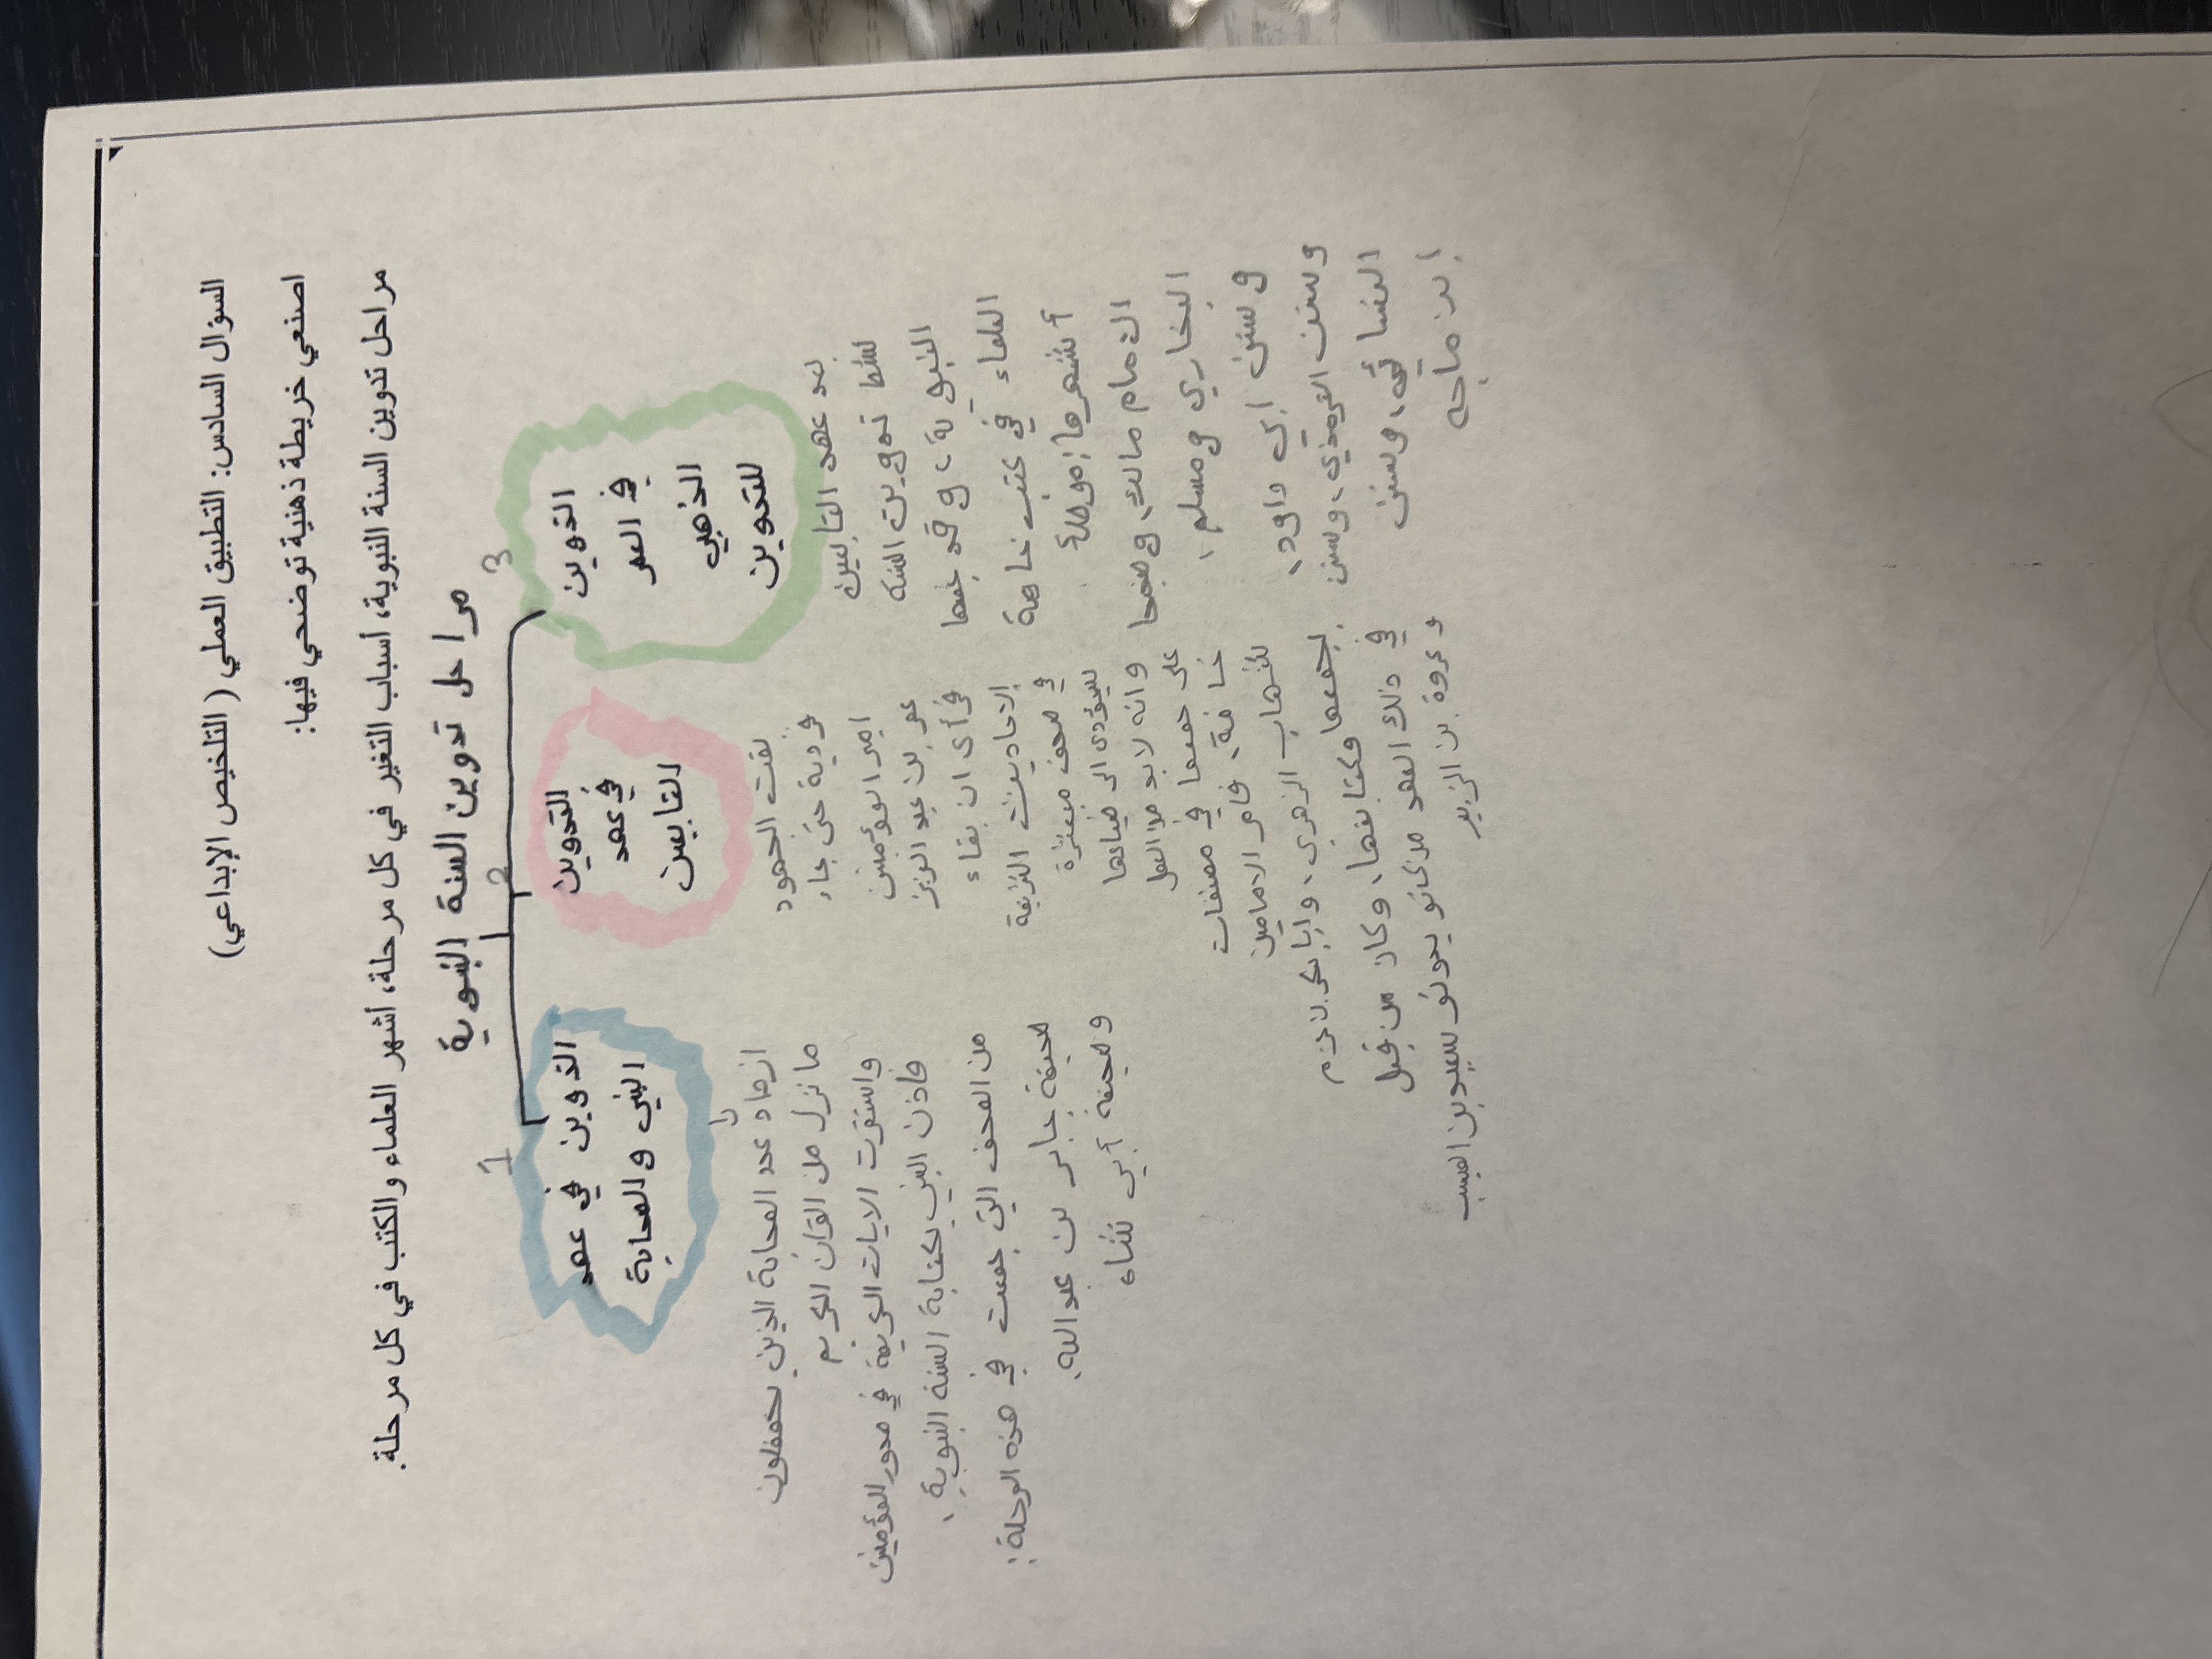 السؤال السادس: التطبيق العملي ( التلخيص الإبداعي)
اصنعي خريطة ذهنية توضحي فيها:
مراحل تدوين السنة النبوية، أسباب التغير في كل مرحلة، أشهر العلماء والكتب في كل مرحلة.
مراحل تدوين السنة النبوية
1
التدوين في عهد
النبي والصحابة
ازداد عدد الصحابة الذين يحفظون
ما نزل من القرآن الكريم
واستقرت الايات الكريمة في صدور المؤمنين
فاذن النبي بكتابة السنة النبوية،
من الصحف التي جمعت في هذه المرحلة:
صحيفة جابر بن عبدالله،
وصحيفة أبي شاه
2
التدوين
في عهد
التابعين
بقت الجهود
فردية حتى جاء
امير المؤمنين
عمر بن عبد العزيز
فرأى ان بقاء
الاحاديث الشريفة
في صحف مبعثرة
سيؤدي الى ضياعها
وانه لابد من العمل
على جمعها في مصنفات
خاصة، فامر الامامين
شهاب الزهري، وابا بكر بن حزم
بجمعها وكتابتها، وكان من قبل
في ذلك العهد من كانو يدونو سعيد بن المسيب
وعروة بن الزبير
3
التدوين
في العصر
الذهبي
للتدوين
بعد عهد التابعين
نشط تدوين السنه
النبوية، وقد جمعها
العلماء في كتب خاصة
أشهرها: موطأ
الامام مالك، وصحيحا
البخاري ومسلم،
وسنن ابي داود،
وسنن الترمذي، وسنن
النسائي، وسنن
ابن ماجه